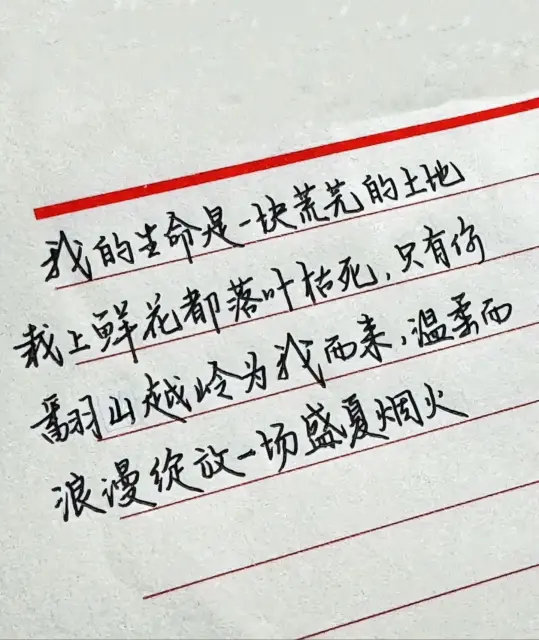 我的生命是一块荒芜的土地
栽上鲜花都落叶枯死,只有你
翻山越岭为我而来,温柔而
浪漫绽放一场盛夏烟火